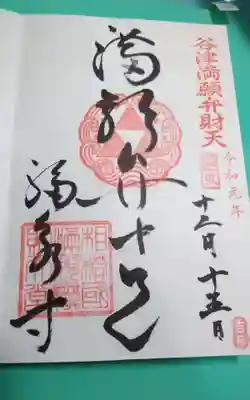 谷津満願弁財天
令和元年
十二月十五日
満願弁才天
福泉寺